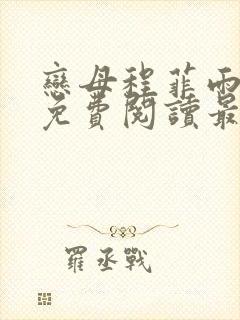 戀母程菲雨
免費閱讀最
羅丞戰